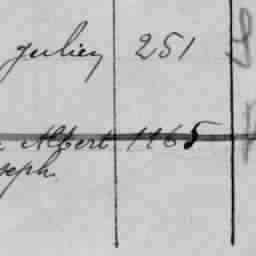 Julien 251
Albert 1165
seph